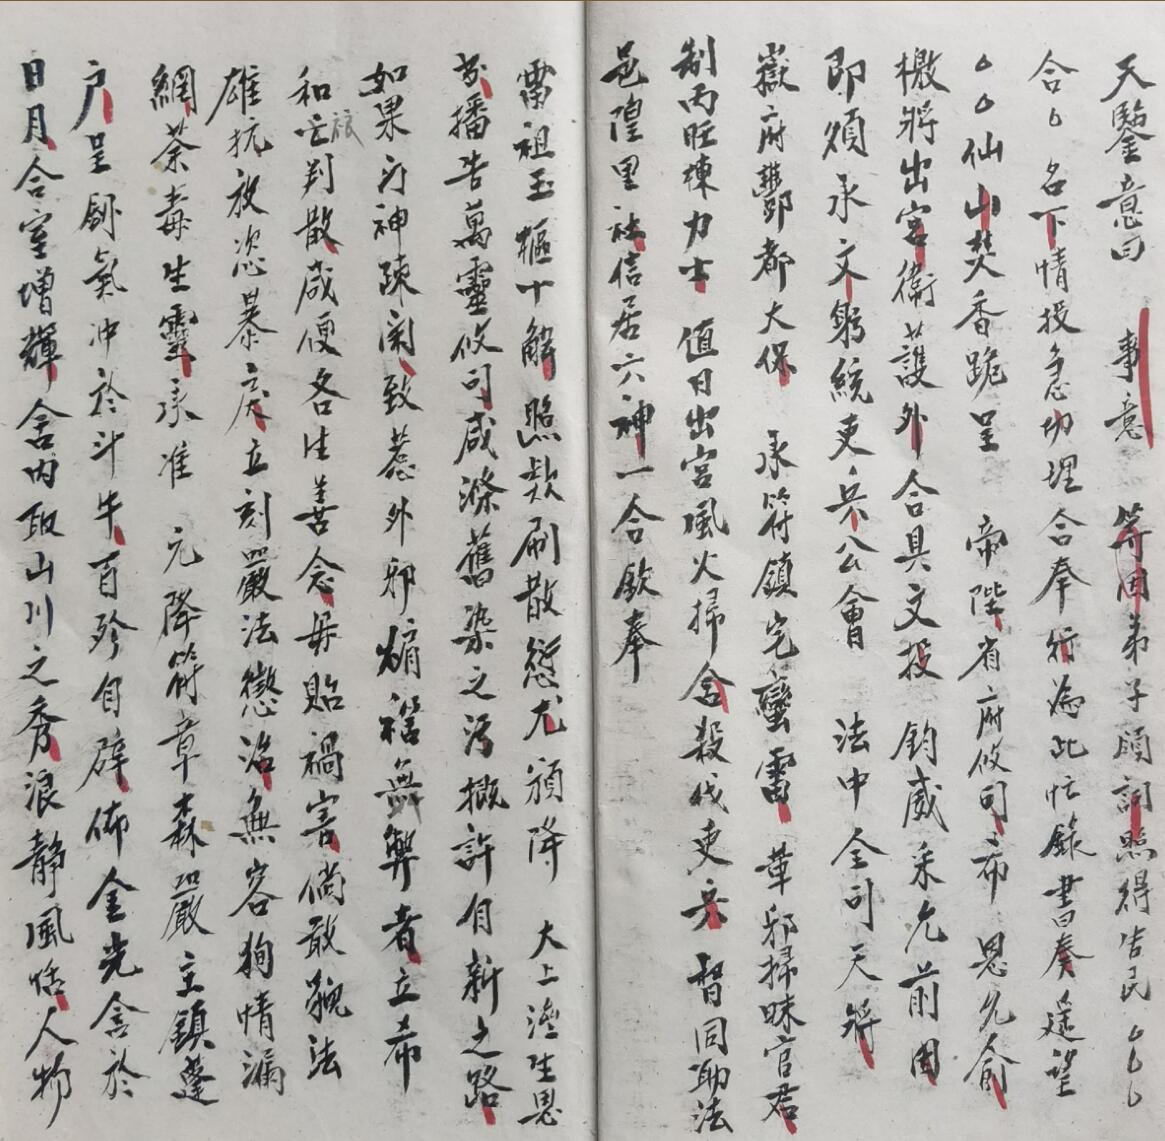 天鑒意曰 事意 等因弟子嗣詞照得告民厶厶厶
合厶名下情投急切理合奉行為此忙錄書奏遙望
厶厶仙山焚香跪呈 帝陛省府攸司布恩允俞
檄將出宮衛護外合具文投 鈞威采允前因
即頒承文躬統吏兵公會 法中全司天將
嶽府酆都大保 承符鎮宅蠻雷 華邪掃昧官君
制丙旺棟力士 值日出宮風火掃舍殺伐吏兵 督同助法
邑隍里社信居六神一合欽奉
雷祖玉樞十解照燃刷散愆尤頒降 大上澄生恩
播告萬靈攸司咸滌舊染之污概許自新之路
如果汀神疎闲致惹外邪煽禍無弊者立希
和亡判散咸便各生善念毋貽禍害倘敢藐法
雄抗放恣暴戾立刻嚴法懲治無容狥情漏
網荼毒生靈承准 元降符章森嚴主鎮蓬
户呈劍氣冲於斗牛百殄自辟佈金光含於
日月合室增輝舍内取山川之秀浪靜風恬人物